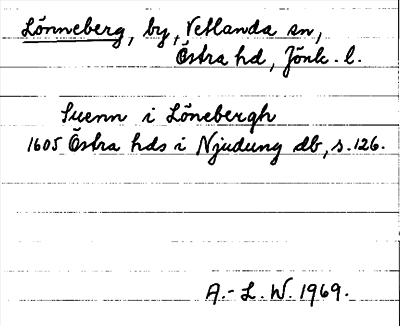 Lönneberg, by, Vetlanda sn,
Östra hd, Jönk. l.
Suenn i Lönebergh
1605 Östra hds i Njudung db, s. 126.
A.-L. W. 1969.